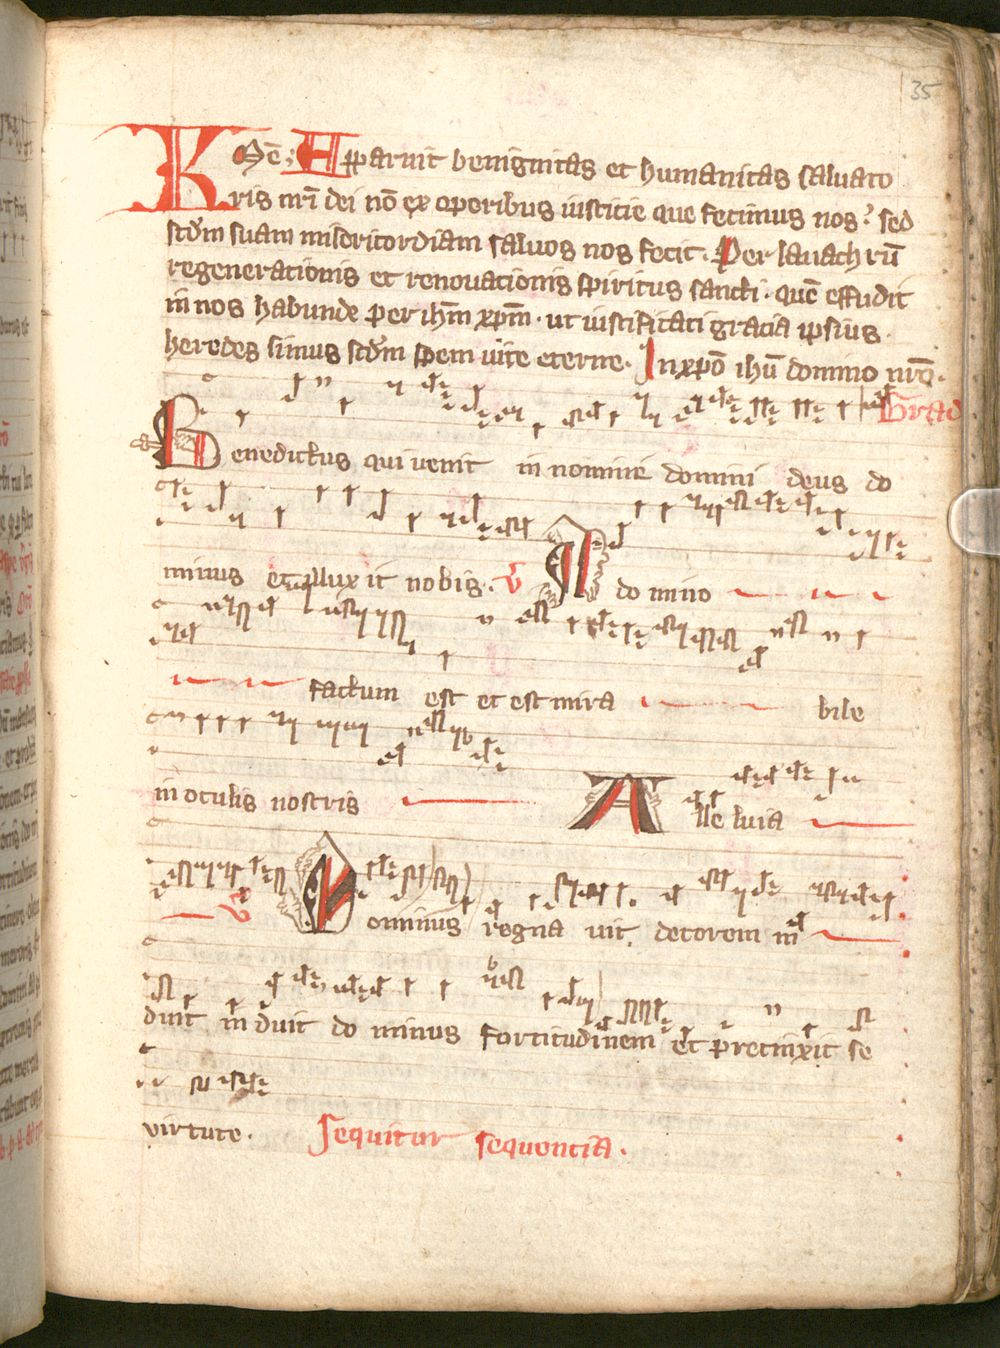 35
K Mē; Apparuit benignitas et humanitas saluato
ris nrī dei nō ex operibus iusticie que fecimus nos? sed
scdm suam misericordiam saluos nos fecit. Per lauachrū
regenerationis et renouationis spiritus sancti. quē effudit
in nos habunde per ihm xpm. ut iustificati gracia ipsius.
heredes simus scdm spem uite eterne. In xpō ihū domino nrō.
Grad
Benedictus qui uenit in nomine domini deus do
minus et illuxit nobis. v A do mino
factum est et est mira bile
in oculis nostris Alle luia
Dominus regna uit decorem in
duit induit do minus fortitudinem et precinxit se
virtute. Sequitur sequencia.